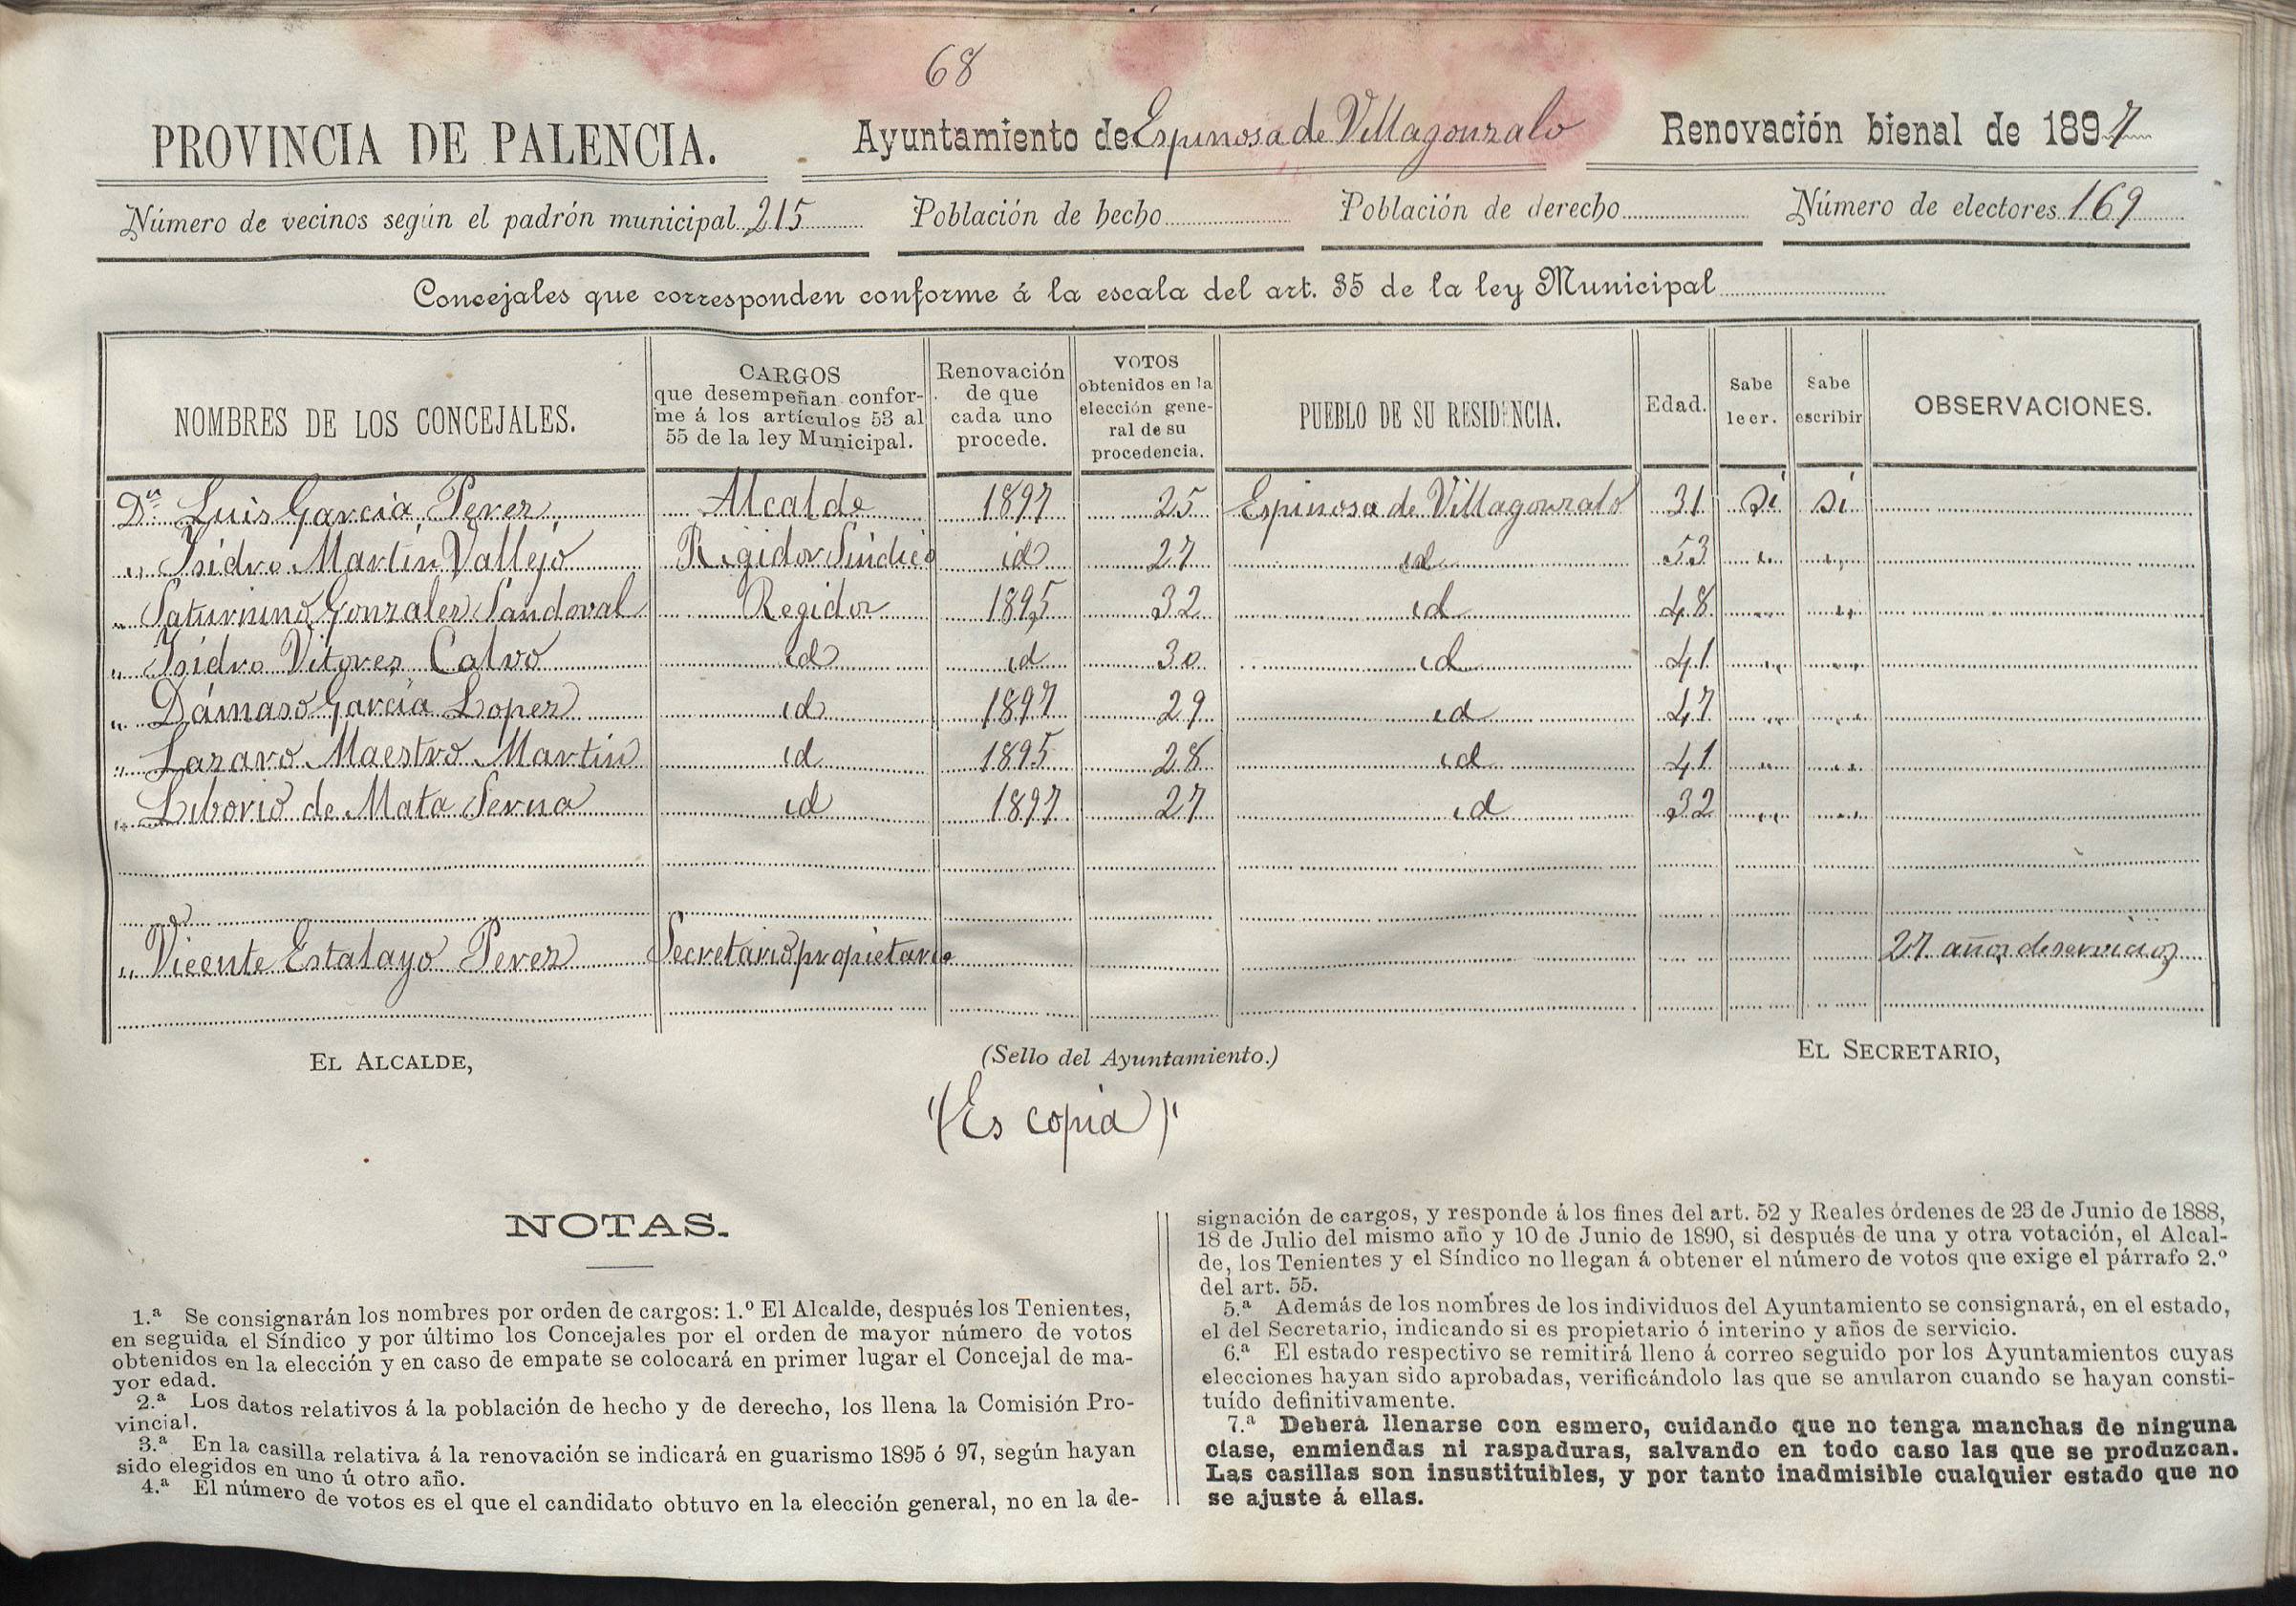 68
PROVINCIA DE PALENCIA. Ayuntamiento de Espinosa de Villagonzalo Renovación bienal de 1897
Número de vecinos según el padrón municipal 215 Población de hecho Población de derecho Número de electores 169
Concejales que corresponden conforme á la escala del art. 35 de la ley Municipal
NOMBRES DE LOS CONCEJALES. CARGOS que desempeñan conforme á los artículos 53 al 55 de la ley Municipal. Renovación de que cada uno procede. VOTOS obtenidos en la elección general de su procedencia. PUEBLO DE SU RESIDENCIA. Edad. Sabe leer. Sabe escribir OBSERVACIONES.
Dn Luis Garcia Perez Alcalde 1897 25 Espinosa de Villagonzalo 31 Si Si
" Isidro Martin Vallejo Regidor Sindico id 27 id 53 " "
" Saturnino Gonzalez Sandoval Regidor 1895 32 id 48 " "
" Isidro Vitores Calvo id id 30 id 41 " "
" Dámaso Garcia Lopez id 1897 29 id 47 " "
" Lazaro Maestro Martin id 1895 28 id 41 " "
" Liborio de Mata Serna id 1897 27 id 32 " "
" Vicente Estalayo Perez Secretario propietario 27 años de servicios
EL ALCALDE, (Sello del Ayuntamiento.) EL SECRETARIO,
"(Es copia)"
NOTAS.
1.ª Se consignarán los nombres por orden de cargos: 1.º El Alcalde, después los Tenientes,
en seguida el Síndico y por último los Concejales por el orden de mayor número de votos
obtenidos en la elección y en caso de empate se colocará en primer lugar el Concejal de ma-
yor edad.
2.ª Los datos relativos á la población de hecho y de derecho, los llena la Comisión Pro-
vincial.
3.ª En la casilla relativa á la renovación se indicará en guarismo 1895 ó 97, según hayan
sido elegidos en uno ú otro año.
4.ª El número de votos es el que el candidato obtuvo en la elección general, no en la de-
signación de cargos, y responde á los fines del art. 52 y Reales órdenes de 23 de Junio de 1888,
18 de Julio del mismo año y 10 de Junio de 1890, si después de una y otra votación, el Alcal-
de, los Tenientes y el Síndico no llegan á obtener el número de votos que exige el párrafo 2.º
del art. 55.
5.ª Además de los nombres de los individuos del Ayuntamiento se consignará, en el estado,
el del Secretario, indicando si es propietario ó interino y años de servicio.
6.ª El estado respectivo se remitirá lleno á correo seguido por los Ayuntamientos cuyas
elecciones hayan sido aprobadas, verificándolo las que se anularon cuando se hayan consti-
tuído definitivamente.
7.ª Deberá llenarse con esmero, cuidando que no tenga manchas de ninguna
clase, enmiendas ni raspaduras, salvando en todo caso las que se produzcan.
Las casillas son insustituibles, y por tanto inadmisible cualquier estado que no
se ajuste á ellas.